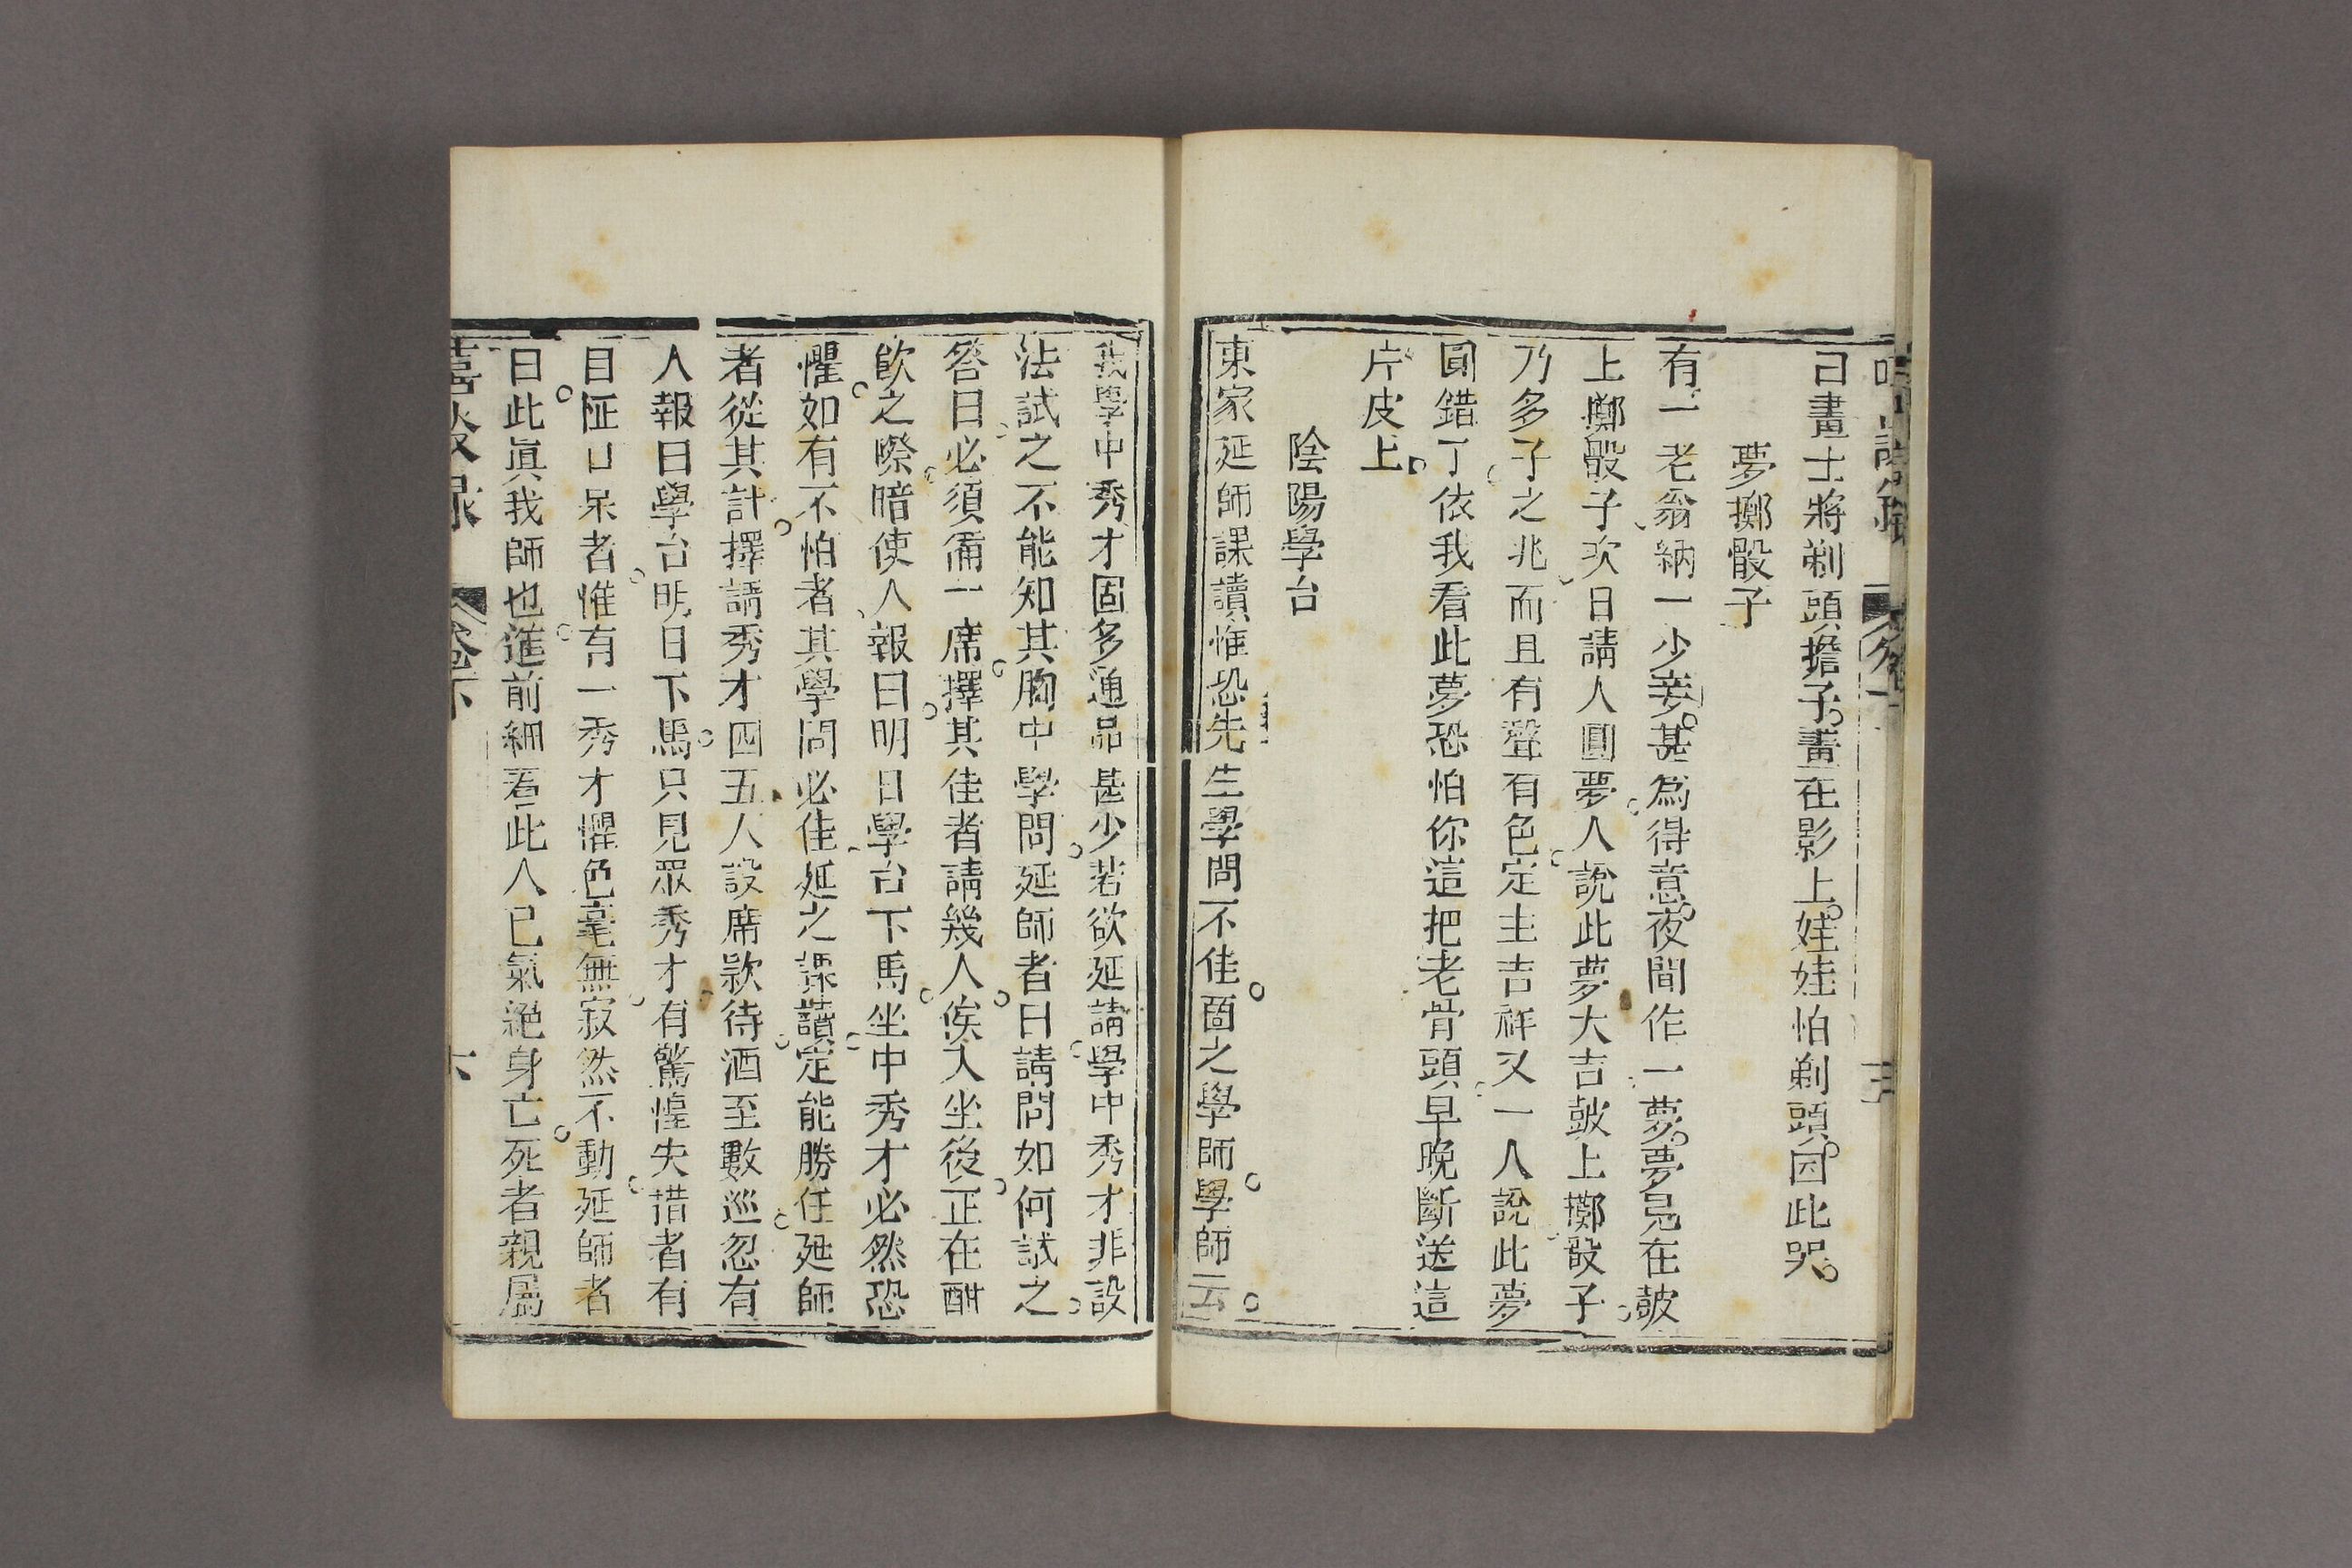 己畫士將剃頭擔子。畫在影上。娃娃怕剃頭。因此哭。
夢擲骰子
有一老翁納一少妾。甚爲得意。夜間作一夢。夢見在皷
上擲骰子。次日請人圓夢。人說此夢大吉。皷上擲骰子。
乃多子之兆。而且有聲有色。定主吉祥。又一人說此夢
圓錯了。依我看此夢恐怕你這把老骨頭。早晚斷送這
片皮上。
陰陽學台
東家延師課讀惟恐先生學問不佳。面之學師。學師云。
我學中秀才固多通品甚少。若欲延請。學中秀才非設。
法試之。不能知其胸中學問。延師者曰。請問如何試之。
答曰。必須備一席。擇其佳者請幾人。俟入坐後。正在酣
飲之際。暗使人報曰。明日學台下馬。坐中秀才必然恐
懼。如有不怕者。其學問必佳。延之課讀。定能勝任。延師
者從其計。擇請秀才四五人。設席欵待。酒至數巡。忽有
人報曰。學台明日下馬。只見眾秀才有驚惶失措者。有
目怔口呆者。惟有一秀才懼色毫無。寂然不動。延師者
曰。此眞我師也。進前細看此人已氣絕身亡。死者親屬
卷下
六